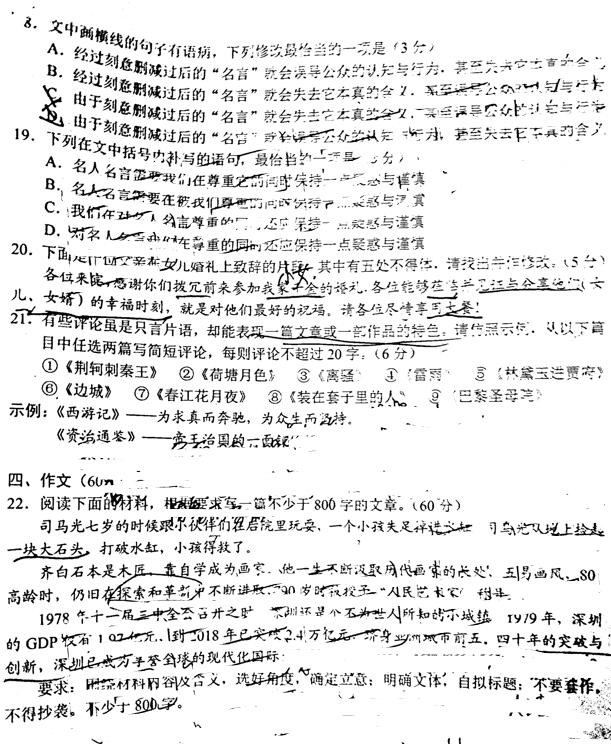 8. 文中画横线的句子有语病，下列修改最恰当的一项是（3分）
A. 经过刻意删减过后的“名言”就会误导公众的认知与行为，甚至失去它本真的含义
B. 经过刻意删减过后的“名言”就会失去它本真的含义，甚至误导公众的认知与行为
C. 由于刻意删减过后的“名言”就会失去它本真的含义，甚至误导公众的认知与行为
D. 由于刻意删减过后的“名言”就会误导公众的认知与行为，甚至失去它本真的含义
19. 下列在文中括号内补写的语句，最恰当的一项是（3分）
A. 名人名言需要我们在尊重它的同时保持一点疑惑与谨慎
B. 名人名言需要在被我们尊重的同时保持一点疑惑与谨慎
C. 我们在对名人名言尊重的同时还应保持一点疑惑与谨慎
D. 对名人名言我们在尊重的同时还应保持一点疑惑与谨慎
20. 下面是一位父亲在女儿婚礼上致辞的片段，其中有五处不得体，请找出并作修改。（5分）
各位来宾，感谢你们拨冗前来参加我家千金的婚礼，各位能够莅临并见证与分享他们（女
儿、女婿）的幸福时刻，就是对他们最好的祝福。请各位尽情享用大餐！
21. 有些评论虽是只言片语，却能表现一篇文章或一部作品的特色。请仿照示例，从以下篇
目中任选两篇写简短评论，每则评论不超过20字。（6分）
①《荆轲刺秦王》 ②《荷塘月色》 ③《离骚》 ④《雷雨》 ⑤《林黛玉进贾府》
⑥《边城》 ⑦《春江花月夜》 ⑧《装在套子里的人》 ⑨《巴黎圣母院》
示例：《西游记》——为求真而奔驰，为众生而坚持。
《资治通鉴》——帝王治国的一面镜
四、作文（60分
22. 阅读下面的材料，根据要求写一篇不少于800字的文章。（60分）
司马光七岁的时候跟小伙伴们在后院里玩耍，一个小孩失足掉进水缸，司马光从地上捡起
一块大石头，打破水缸，小孩得救了。
齐白石本是木匠，靠自学成为画家，他一生不断汲取历代画家的长处，五易画风，80
高龄时，仍旧在探索和革新中不断进取，90岁时被授予“人民艺术家”称号。
1978年十一届三中全会召开之时，深圳还是个不为世人所知的小城镇，1979年，深圳
的GDP仅有1.02亿元，到2018年已突破2.4万亿元，跻身亚洲城市前五。四十年的突破与
创新，深圳已成为享誉全球的现代化国际
要求：围绕材料内容及含义，选好角度，确定立意；明确文体，自拟标题；不要套作，
不得抄袭。不少于800字。